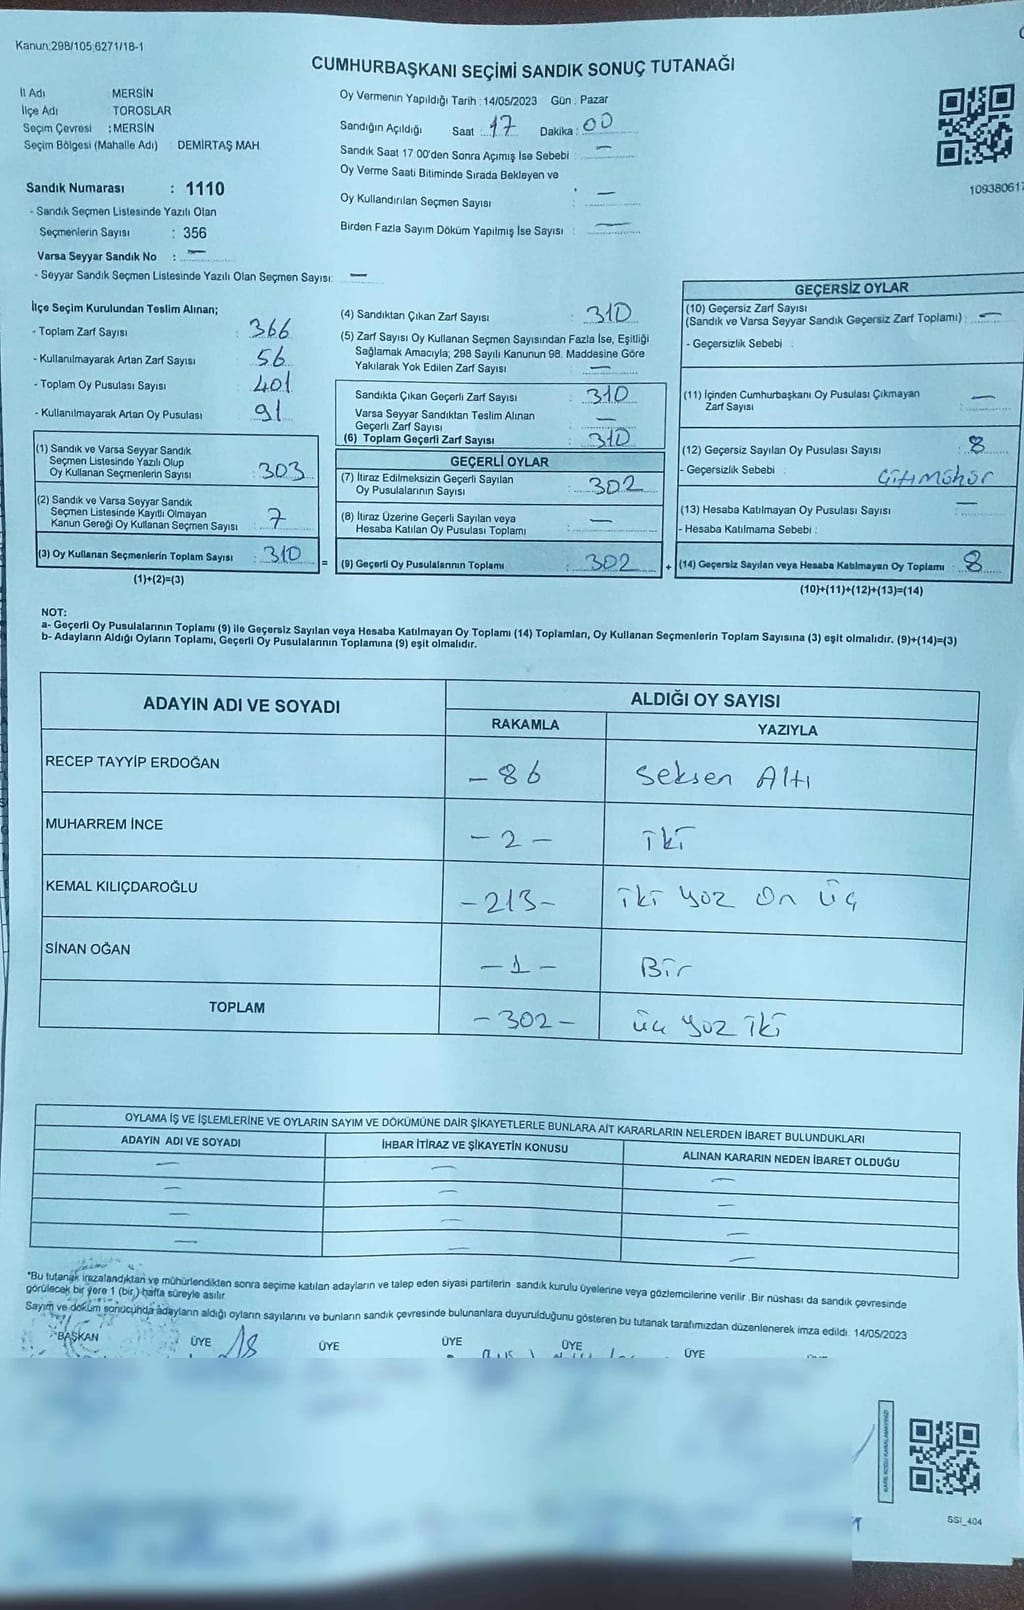 Kanun;298/105;6271/18-1
CUMHURBAŞKANI SEÇİMİ SANDIK SONUÇ TUTANAĞI
İl Adı MERSİN
İlçe Adı TOROSLAR
Seçim Çevresi : MERSİN
Seçim Bölgesi (Mahalle Adı) DEMİRTAŞ MAH.
Oy Vermenin Yapıldığı Tarih : 14/05/2023 Gün : Pazar
Sandığın Açıldığı Saat : 17 Dakika : 00
Sandık Saat 17 00'den Sonra Açımış İse Sebebi : —
Oy Verme Saati Bitiminde Sırada Bekleyen ve
Oy Kullandırılan Seçmen Sayısı : —
Birden Fazla Sayım Döküm Yapılmış İse Sayısı : —
109380617
Sandık Numarası : 1110
- Sandık Seçmen Listesinde Yazılı Olan
Seçmenlerin Sayısı : 356
Varsa Seyyar Sandık No : —
- Seyyar Sandık Seçmen Listesinde Yazılı Olan Seçmen Sayısı: —
İlçe Seçim Kurulundan Teslim Alınan;
- Toplam Zarf Sayısı : 366
- Kullanılmayarak Artan Zarf Sayısı : 56
- Toplam Oy Pusulası Sayısı : 401
- Kullanılmayarak Artan Oy Pusulası : 91
(1) Sandık ve Varsa Seyyar Sandık
Seçmen Listesinde Yazılı Olup
Oy Kullanan Seçmenlerin Sayısı : 303
(2) Sandık ve Varsa Seyyar Sandık
Seçmen Listesinde Kayıtlı Olmayan
Kanun Gereği Oy Kullanan Seçmen Sayısı : 7
(3) Oy Kullanan Seçmenlerin Toplam Sayısı : 310
(1)+(2)=(3)
=
(4) Sandıktan Çıkan Zarf Sayısı : 310
(5) Zarf Sayısı Oy Kullanan Seçmen Sayısından Fazla İse, Eşitliği
Sağlamak Amacıyla; 298 Sayılı Kanunun 98. Maddesine Göre
Yakılarak Yok Edilen Zarf Sayısı : —
Sandıkta Çıkan Geçerli Zarf Sayısı : 310
Varsa Seyyar Sandıktan Teslim Alınan
Geçerli Zarf Sayısı : —
(6) Toplam Geçerli Zarf Sayısı : 310
GEÇERLİ OYLAR
(7) İtiraz Edilmeksizin Geçerli Sayılan
Oy Pusulalarının Sayısı : 302
(8) İtiraz Üzerine Geçerli Sayılan veya
Hesaba Katılan Oy Pusulası Toplamı : —
(9) Geçerli Oy Pusulalarının Toplamı : 302
+
GEÇERSİZ OYLAR
(10) Geçersiz Zarf Sayısı
(Sandık ve Varsa Seyyar Sandık Geçersiz Zarf Toplamı) : —
- Geçersizlik Sebebi :
(11) İçinden Cumhurbaşkanı Oy Pusulası Çıkmayan
Zarf Sayısı : —
(12) Geçersiz Sayılan Oy Pusulası Sayısı : 8
- Geçersizlik Sebebi : Çift Mühür
(13) Hesaba Katılmayan Oy Pusulası Sayısı : —
- Hesaba Katılmama Sebebi :
(14) Geçersiz Sayılan veya Hesaba Katılmayan Oy Toplamı : 8
(10)+(11)+(12)+(13)=(14)
NOT:
a- Geçerli Oy Pusulalarının Toplamı (9) ile Geçersiz Sayılan veya Hesaba Katılmayan Oy Toplamı (14) Toplamları, Oy Kullanan Seçmenlerin Toplam Sayısına (3) eşit olmalıdır. (9)+(14)=(3)
b- Adayların Aldığı Oyların Toplamı, Geçerli Oy Pusulalarının Toplamına (9) eşit olmalıdır.
ADAYIN ADI VE SOYADI ALDIĞI OY SAYISI
RAKAMLA YAZIYLA
RECEP TAYYİP ERDOĞAN – 86 Seksen Altı
MUHARREM İNCE – 2 – iki
KEMAL KILIÇDAROĞLU – 213 – iki yüz On üç
SİNAN OĞAN – 1 – Bir
TOPLAM – 302 – üç yüz iki
OYLAMA İŞ VE İŞLEMLERİNE VE OYLARIN SAYIM VE DÖKÜMÜNE DAİR ŞİKAYETLERLE BUNLARA AİT KARARLARIN NELERDEN İBARET BULUNDUKLARI
ADAYIN ADI VE SOYADI İHBAR İTİRAZ VE ŞİKAYETİN KONUSU ALINAN KARARIN NEDEN İBARET OLDUĞU
— — —
— — —
— — —
— — —
*Bu tutanak imzalandıktan ve mühürlendikten sonra seçime katılan adayların ve talep eden siyasi partilerin sandık kurulu üyelerine veya gözlemcilerine verilir. Bir nüshası da sandık çevresinde
görülecek bir yere 1 (bir) hafta süreyle asılır
Sayım ve döküm sonucunda adayların aldığı oyların sayılarını ve bunların sandık çevresinde bulunanlara duyurulduğunu gösteren bu tutanak tarafımızdan düzenlenerek imza edildi. 14/05/2023
BAŞKAN ÜYE ÜYE ÜYE ÜYE ÜYE
SSİ_404